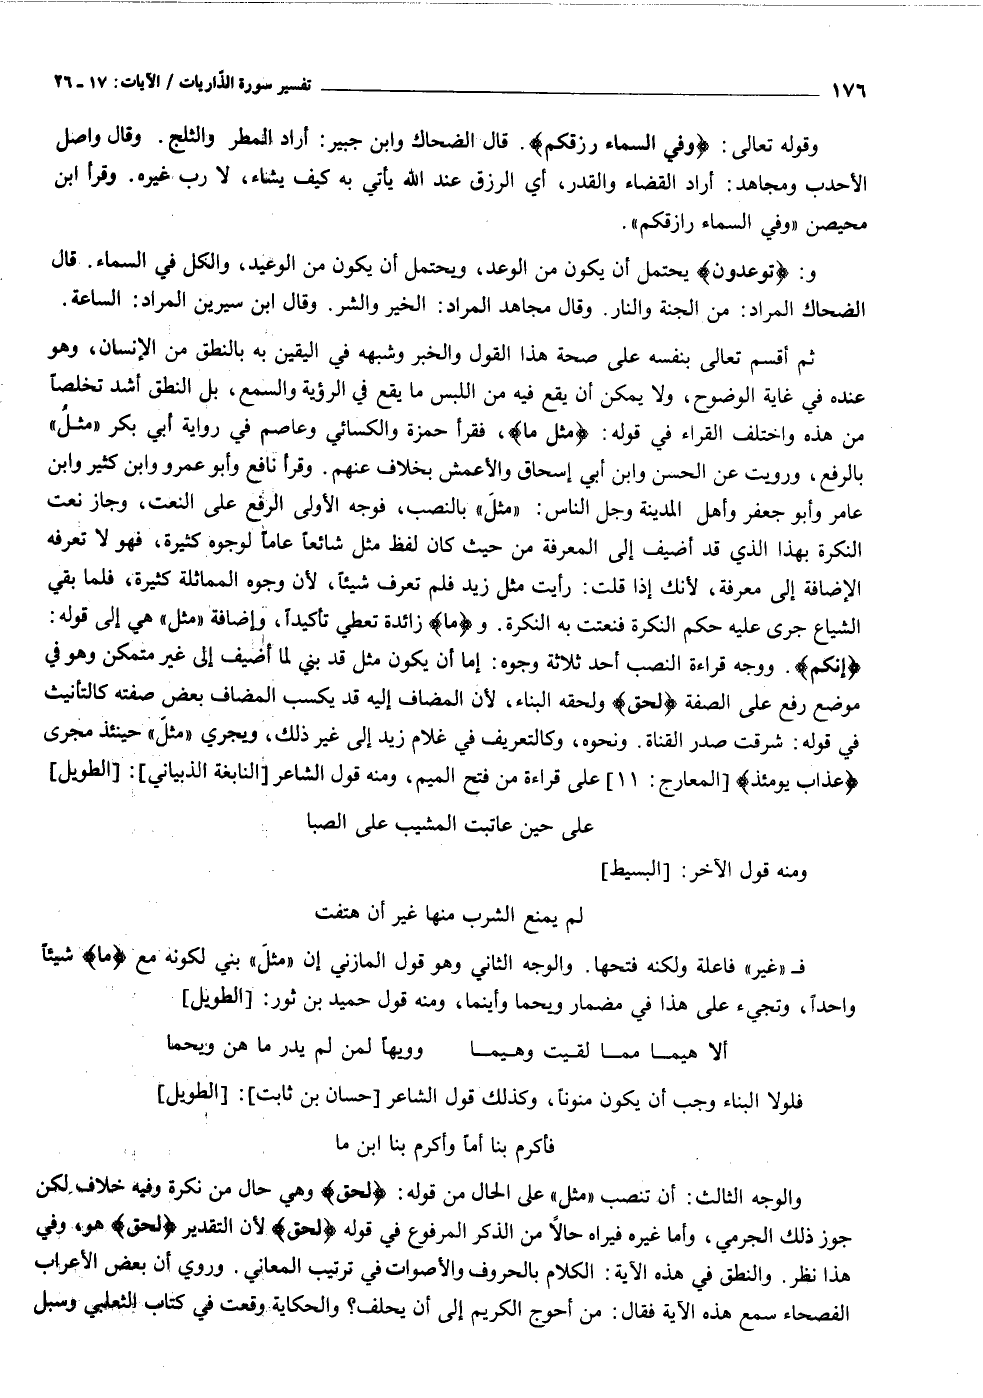 ١٧٦ ــــــ تفسير سورة الذّاريات / الآيات: ١٧ ـ ٢٦
وقوله تعالى: ﴿وفي السماء رزقكم﴾. قال الضحاك وابن جبير: أراد المطر والثلج. وقال واصل
الأحدب ومجاهد: أراد القضاء والقدر، أي الرزق عند الله يأتي به كيف يشاء، لا رب غيره. وقرأ ابن
محيصن «وفي السماء رازقكم».
و: ﴿توعدون﴾ يحتمل أن يكون من الوعد، ويحتمل أن يكون من الوعيد، والكل في السماء. قال
الضحاك المراد: من الجنة والنار. وقال مجاهد المراد: الخير والشر. وقال ابن سيرين المراد: الساعة.
ثم أقسم تعالى بنفسه على صحة هذا القول والخبر وشبهه في اليقين به بالنطق من الإنسان، وهو
عنده في غاية الوضوح، ولا يمكن أن يقع فيه من اللبس ما يقع في الرؤية والسمع، بل النطق أشد تخلصاً
من هذه واختلف القراء في قوله: ﴿مثل ما﴾، فقرأ حمزة والكسائي وعاصم في رواية أبي بكر «مثلُ»
بالرفع، ورويت عن الحسن وابن أبي إسحاق والأعمش بخلاف عنهم. وقرأ نافع وأبو عمرو وابن كثير وابن
عامر وأبو جعفر وأهل المدينة وجل الناس: «مثلَ» بالنصب، فوجه الأولى الرفع على النعت، وجاز نعت
النكرة بهذا الذي قد أضيف إلى المعرفة من حيث كان لفظ مثل شائعاً عاماً لوجوه كثيرة، فهو لا تعرفه
الإضافة إلى معرفة، لأنك إذا قلت: رأيت مثل زيد فلم تعرف شيئاً، لأن وجوه المماثلة كثيرة، فلما بقي
الشياع جرى عليه حكم النكرة فنعتت به النكرة. و﴿ما﴾ زائدة تعطي تأكيداً، وإضافة «مثل» هي إلى قوله:
﴿إنكم﴾. ووجه قراءة النصب أحد ثلاثة وجوه: إما أن يكون مثل قد بني لما أضيف إلى غير متمكن وهو في
موضع رفع على الصفة ﴿لحق﴾ ولحقه البناء، لأن المضاف إليه قد يكسب المضاف بعض صفته كالتأنيث
في قوله: شرقت صدر القناة. ونحوه، وكالتعريف في غلام زيد إلى غير ذلك، ويجري «مثلَ» حينئذ مجرى
﴿عذاب يومئذ﴾ [المعارج: ١١] على قراءة من فتح الميم، ومنه قول الشاعر [النابغة الذبياني]: [الطويل]
على حين عاتبت المشيب على الصبا
ومنه قول الآخر: [البسيط]
لم يمنع الشرب منها غير أن هتفت
فـ «غير» فاعلة ولكنه فتحها. والوجه الثاني وهو قول المازني إن «مثلَ» بني لكونه مع ﴿ما﴾ شيئاً
واحداً، وتجيء على هذا في مضمار ويحما وأينما، ومنه قول حميد بن ثور: [الطويل]
ألا هيمـا ممـا لقيت وهـيمـا وويهاً لمن لم يدر ما هن ويحما
فلولا البناء وجب أن يكون منوناً، وكذلك قول الشاعر [حسان بن ثابت]: [الطويل]
فأكرم بنا أماً وأكرم بنا ابن ما
والوجه الثالث: أن تنصب «مثل» على الحال من قوله: ﴿لحق﴾ وهي حال من نكرة وفيه خلاف لكن
جوز ذلك الجرمي، وأما غيره فيراه حالاً من الذكر المرفوع في قوله ﴿لحق﴾ لأن التقدير ﴿لحق﴾ هو، وفي
هذا نظر. والنطق في هذه الآية: الكلام بالحروف والأصوات في ترتيب المعاني. وروي أن بعض الأعراب
الفصحاء سمع هذه الآية فقال: من أحوج الكريم إلى أن يحلف؟ والحكاية وقعت في كتاب الثعلبي وسبل